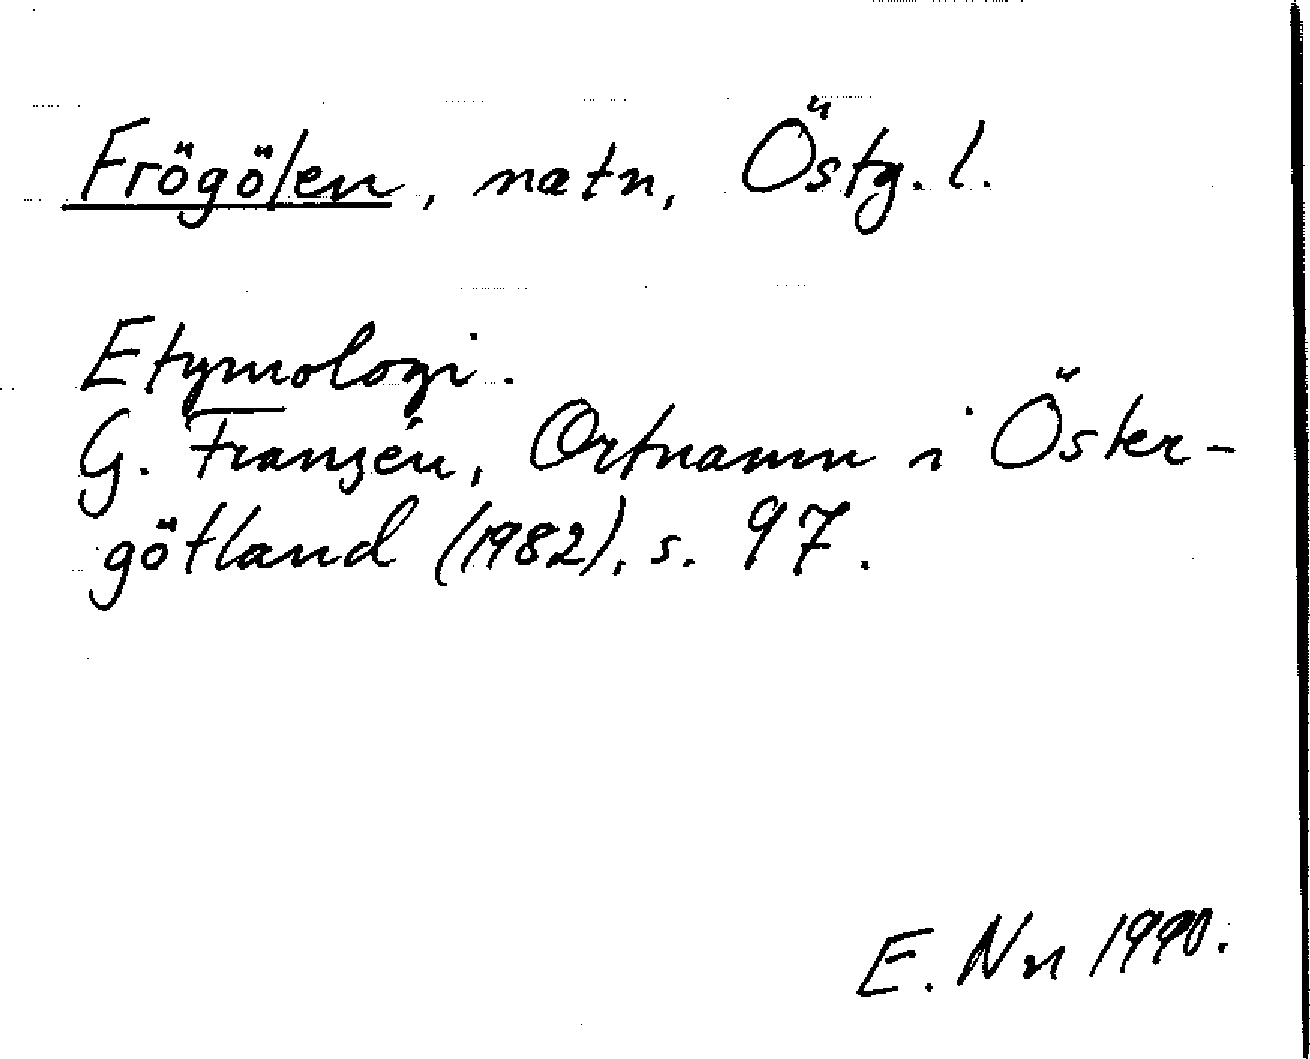 Frögölen, natn, Östg. l.
Etymologi.
G. Franzén, Ortnamn i Öster-
götland (1982), s. 97.
E. Nn 1990.